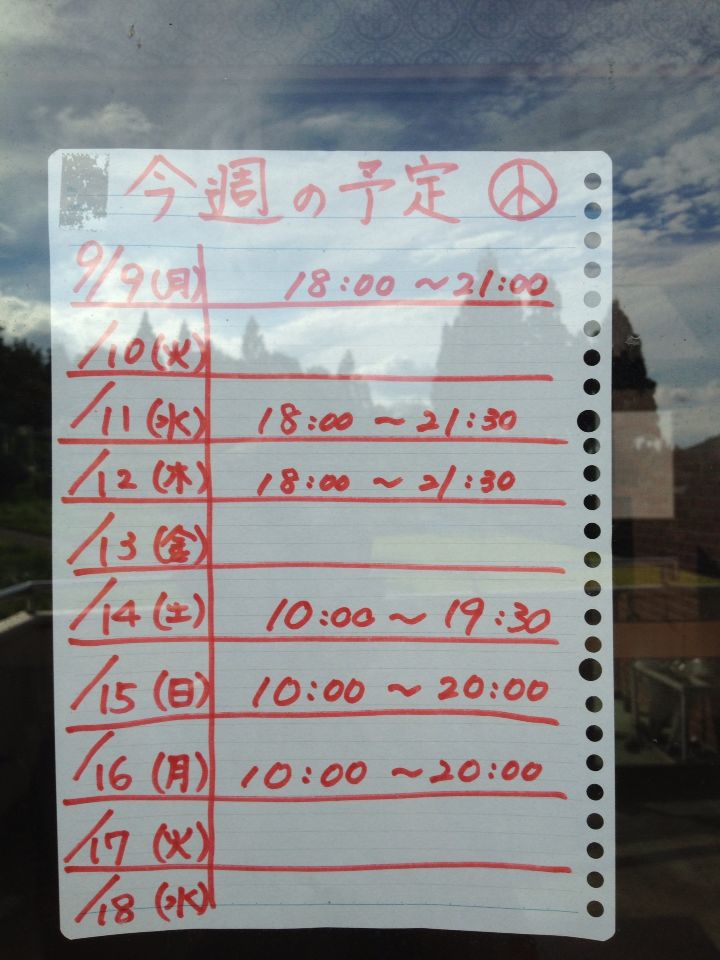 今週の予定
9/9(月) 18:00 ~21:00
/10(火)
/11(水) 18:00 ~ 21:30
/12(木) 18:00 ~ 21:30
/13(金)
/14(土) 10:00 ~ 19:30
/15(日) 10:00 ~ 20:00
/16(月) 10:00 ~20:00
/17(火)
/18(水)